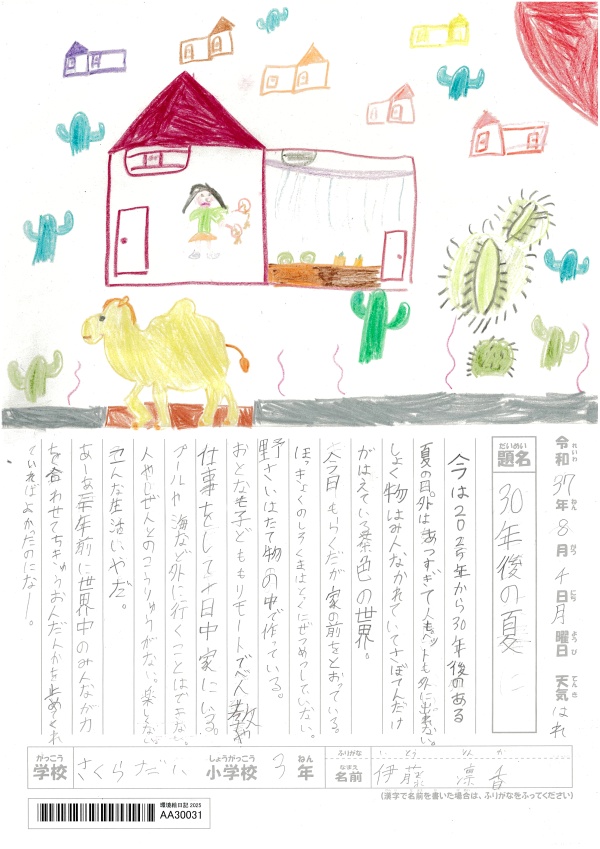 令和37年8月4日月曜日 天気はれ
れいわ ねん がつ にち ようび てんき
だいめい
題名
30年後の夏
今は2025年から30年後のある
夏の日。外はあつすぎて人もペットも外に出れない。
しょく物はみんなかれていてさばてんだけ
がはえている茶色の世界。
今日もらくだが家の前をとおっている。
ほっきょくのしろくまはとっくにぜつめつしていない。
野さいはたて物の中で作っている。
おとなも子どももリモートでべん教や
仕事をして一日中家にいる。
プールや海など外に行くことはできない。
人やしぜんとのこうりゅうがない。楽しくない。
こんな生活いやだ。
あーあ年前に世界中のみんなが力
を合わせてちきゅうおんだんかを止めてくれ
ていればよかったのになー。
がっこう しょうがっこう ねん
学校 さくらだい 小学校 3年
ふりがな いとう りんか
なまえ
名前 伊藤凛香
(漢字で名前を書いた場合は、ふりがなをふってください)
環境絵日記 2025
AA30031